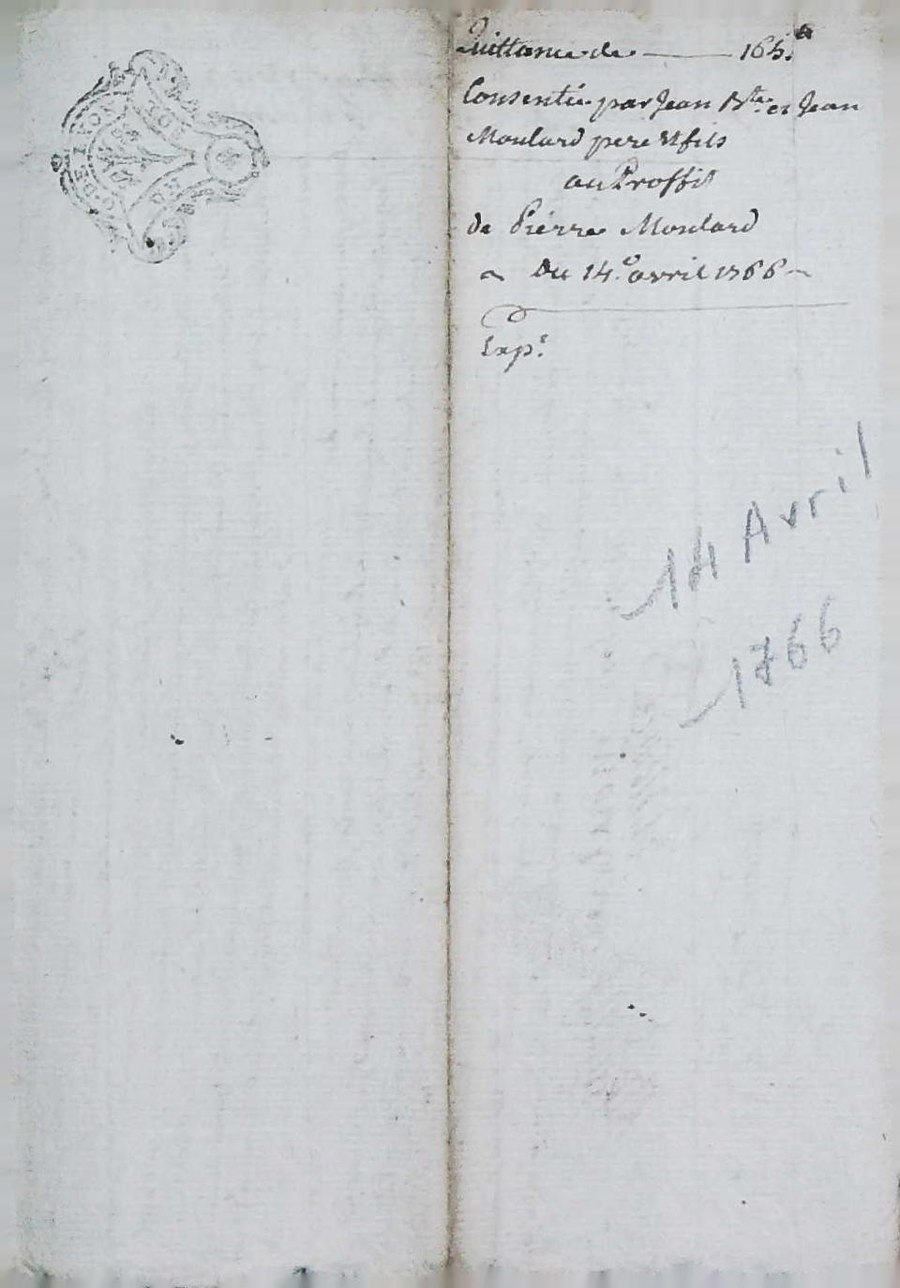 G. DE LYON
DEUX SOLS
Quittance de ——— 165.#
Consentie par Jean Bte. et Jean
Moulard pere et fils
au Proffit
de Pierre Moulard
~ Du 14.e avril 1766 ~
Exp.e
14 Avril
1766